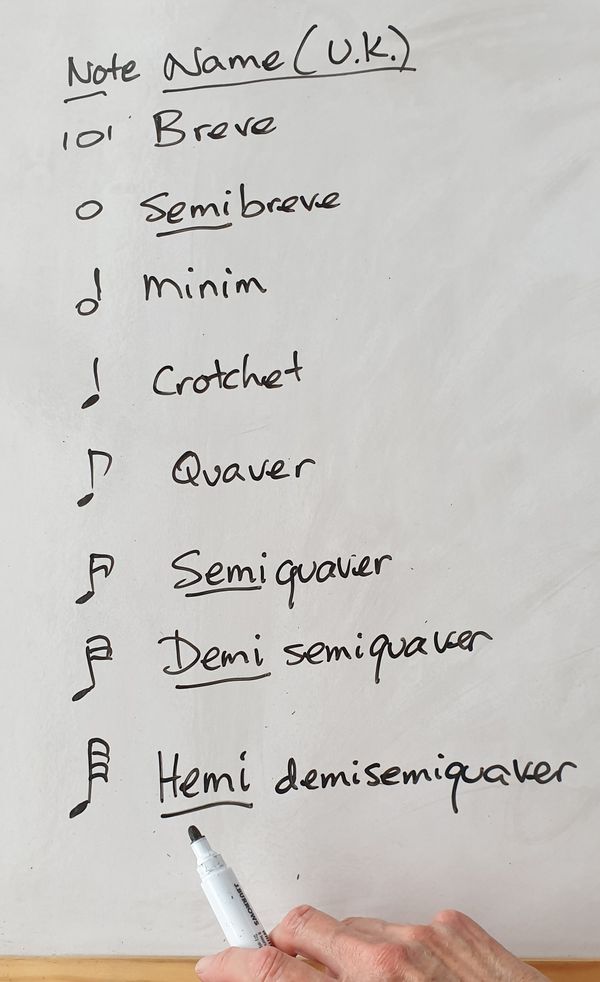 Note Name (U.K.)
Breve
Semibreve
minim
Crotchet
Quaver
Semiquaver
Demi semiquaver
Hemi demisemiquaver